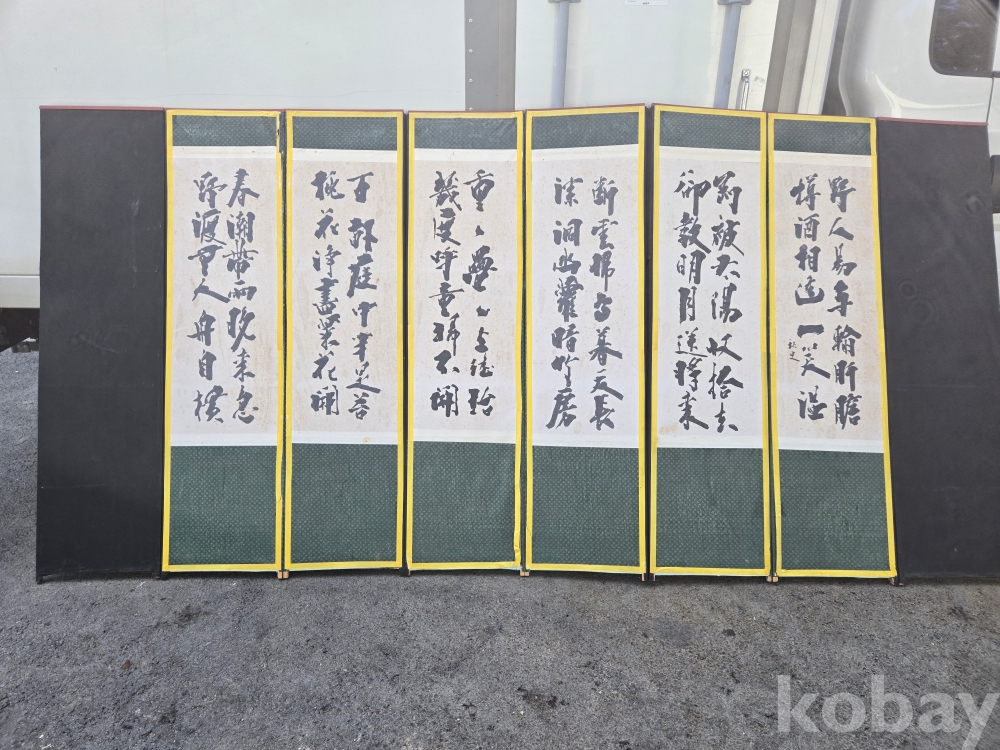 野人易與輸肝膽
樽酒相逢一笑溫
秋史
剛被太陽收拾去
却敎明月送將來
斷雲歸鳥暮天長
深洞幽蘿暗竹房
重々疊々上瑤臺
幾度呼童掃不開
百畝庭中半是苔
桃花淨盡菜花開
春潮帶雨晩來急
野渡無人舟自橫
kobay